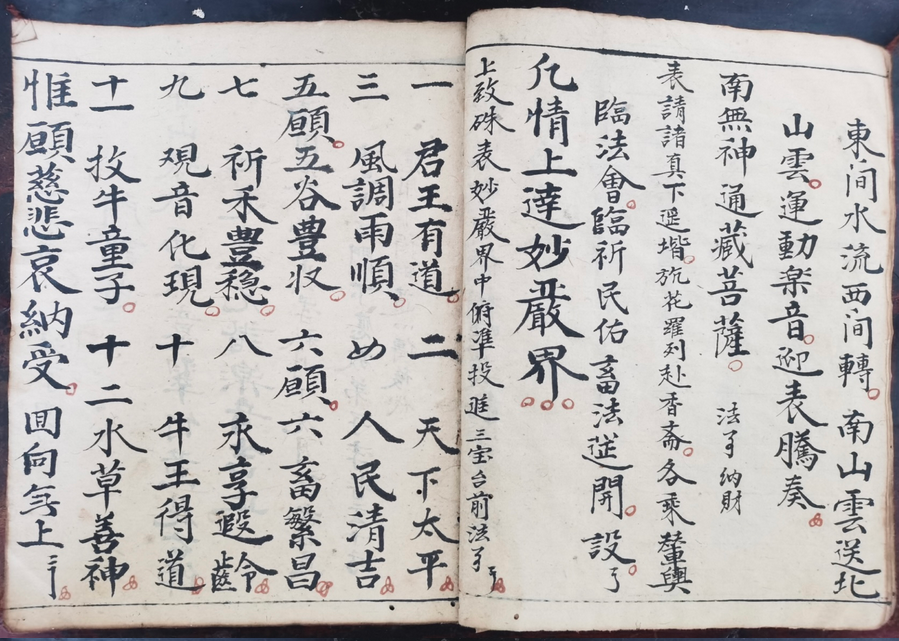 東澗水流西澗轉南山雲送北
山雲運動楽音迎表騰奏
南無神通藏菩薩 法事納財
表請諸真下遥堦旂花羅列赴香斋各乘輦輿
臨法會臨祈民佑畜法筵開設了
凢情上達妙嚴界
上敎硃表妙嚴界中俯準投進三宝台前法事了
一 君王有道 二 天下太平
三 風調雨順 四 人民清吉
五願五谷豊収 六願六畜繁昌
七 祈禾豊穏 八 永享遐齡
九 观音化現 十 牛王得道
十一 放牛童子 十二水草善神
惟願慈悲哀納受 回向無上